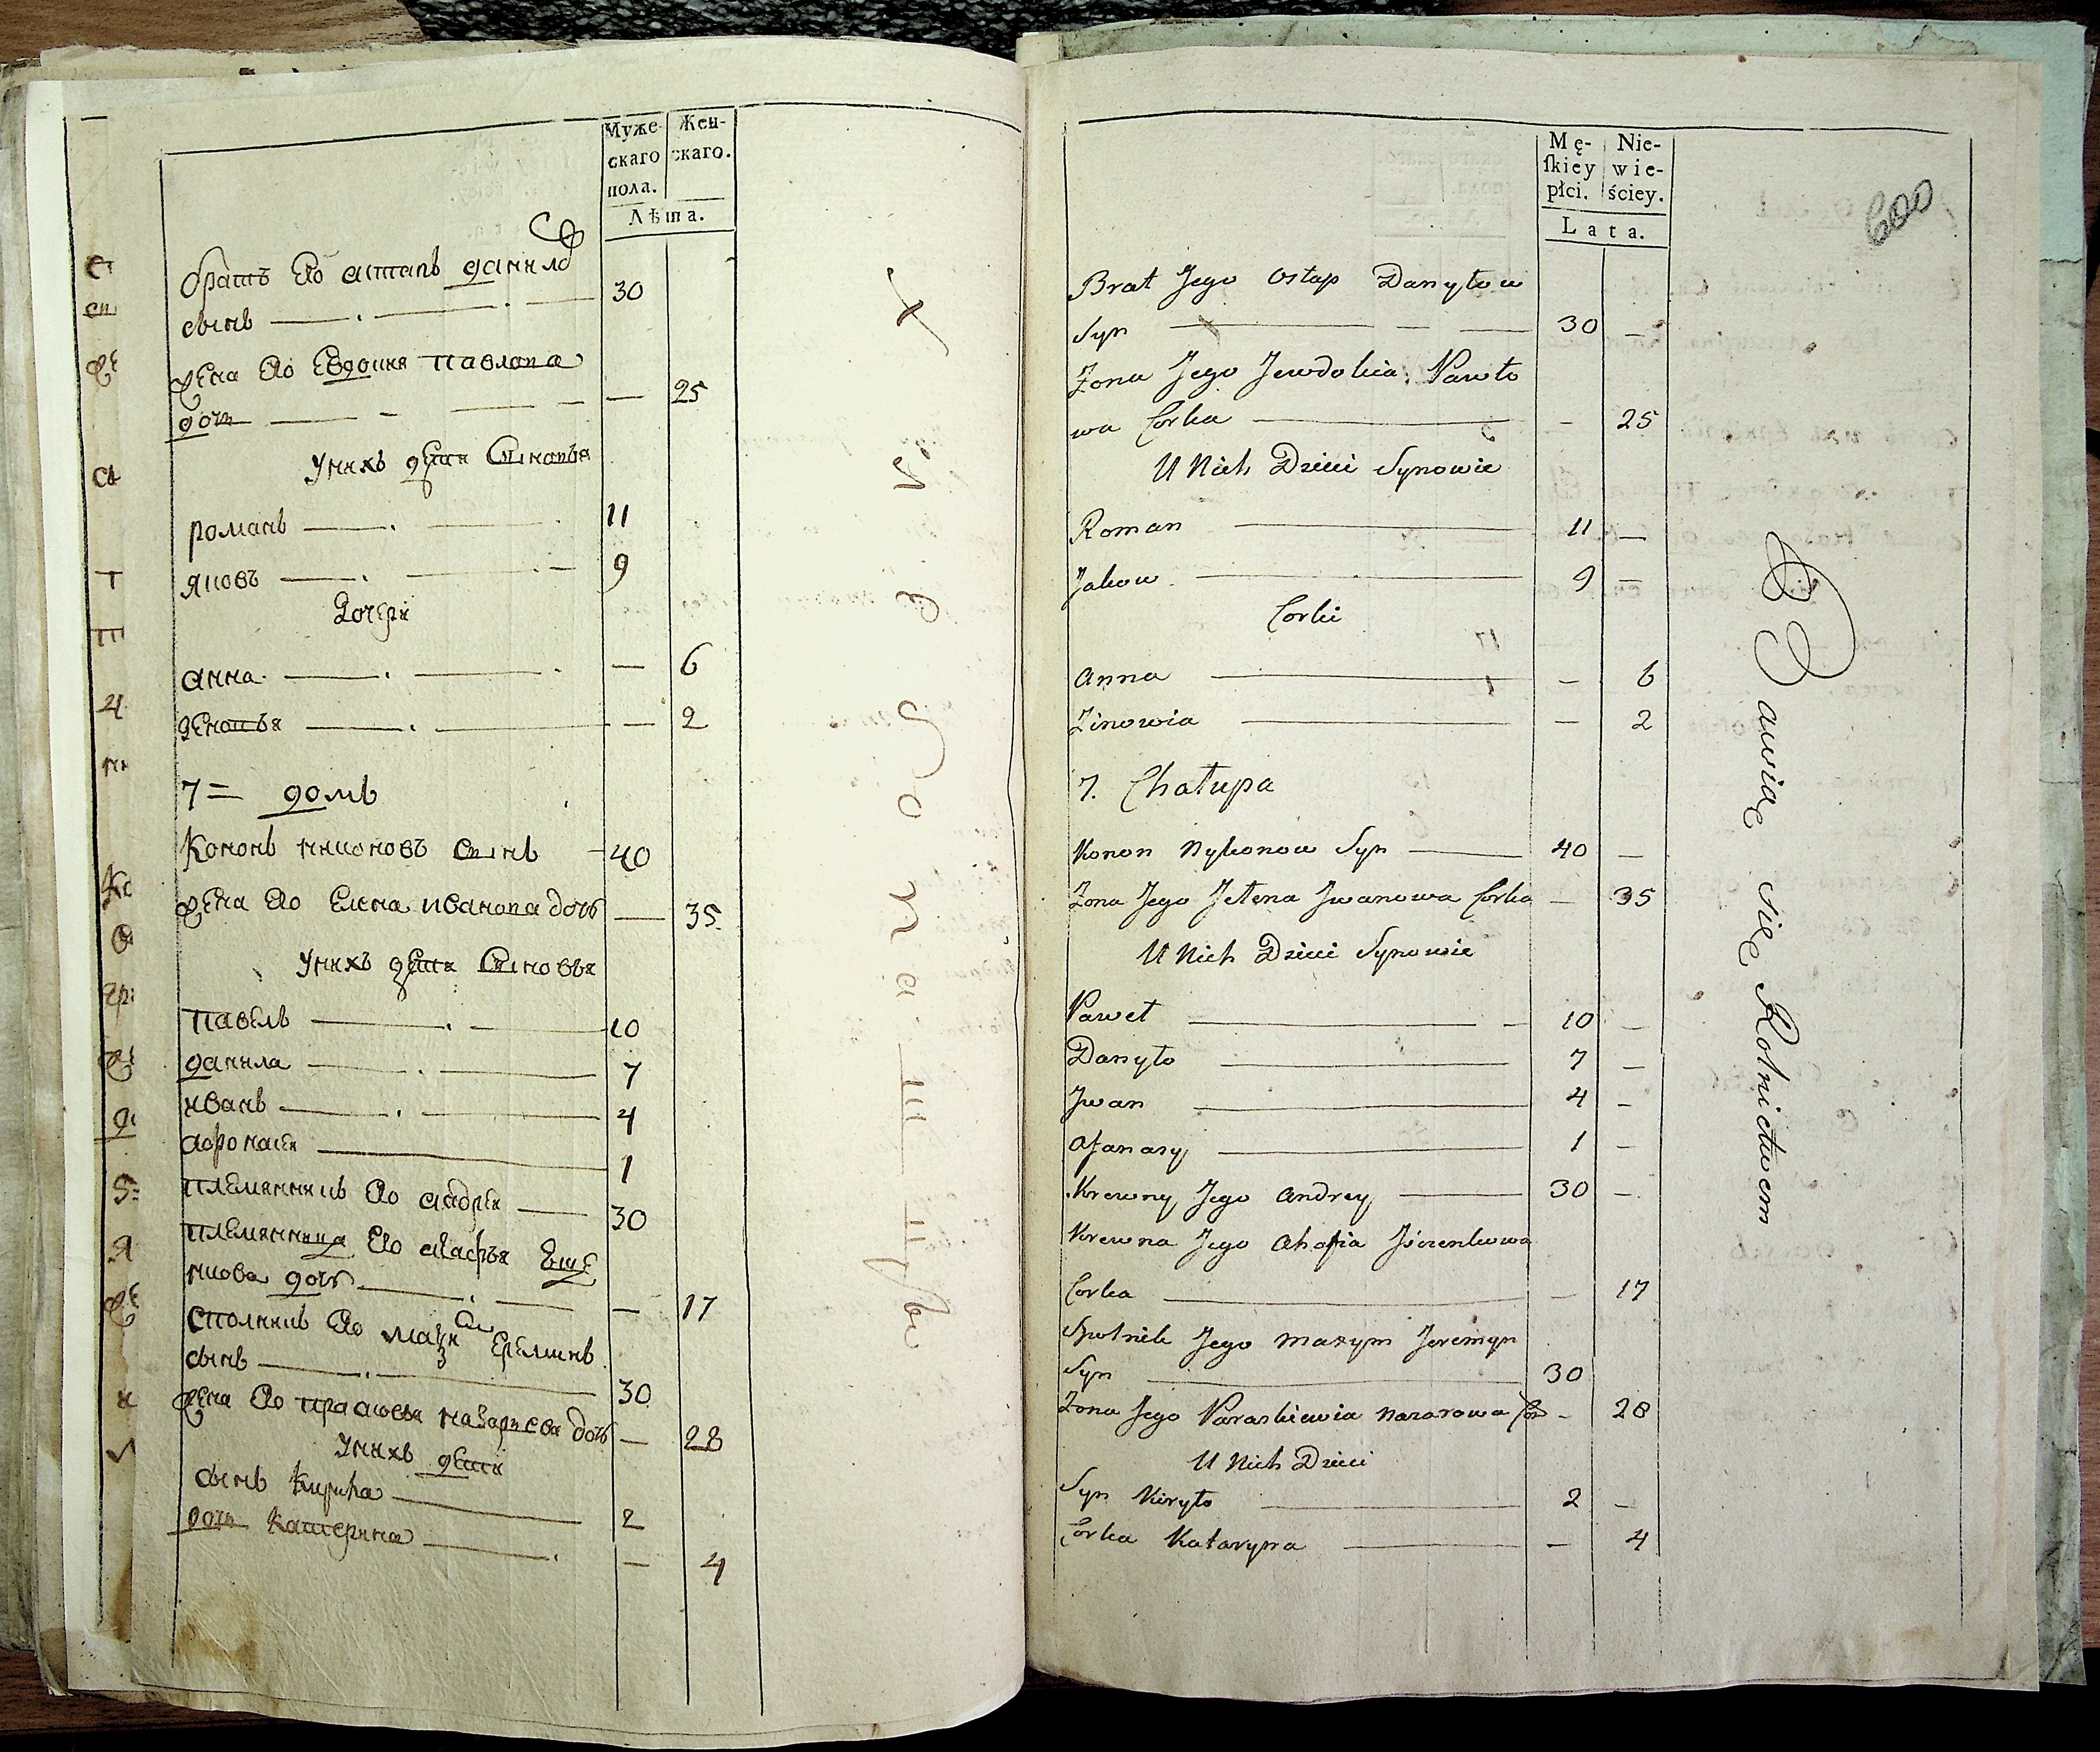 Муже-
скаго
пола.
Жен-
скаго.
Лѣта.
братъ Его астапъ данило в
сынъ — 30
жена Его Евдокия павлова
дочь — 25
У нихъ дети Сыновья
романъ — 11
яковъ — 9
Дочери
анна — 6
зеновья — 2
7 = домъ
Кононъ никоновъ сынъ — 40
жена Его Елена иванова дочь — 35
У нихъ дети Сыновья
павелъ — 10
данила — 7
иванъ — 4
афонасей — 1
племянникъ Его андрей — 30
племянница Его агафья
дочь — 17
Его мази м Ереминъ
сынъ — 30
жена Его прасковья назарьева дочь — 28
У нихъ дети
сынъ Кирила — 2
дочь Катерина — 4
Хлебопашцы
600
Mę-
ſkiey
płci.
Nie-
wie-
ściey.
Lata.
Brat Jego Ostap Danyłow
Syn — 30 —
Zona Jego Jewdokia Pawło
wa Corka — 25
U Nich Dzieci Synowie
Roman — 11 —
Jakow — 9 —
Corki
Anna — 6
Zinowia — 2
7. Chałupa
Konon Nykonow Syn — 40 —
Zona Jego Jełena Jwanowa Corka — 35
U Nich Dzieci Synowie
Paweł — 10 —
Danyło — 7 —
Jwan — 4 —
Afanasy — 1 —
Krewny Jego Andrey — 30 —
Krewna Jego Ahafia
Corka — 17
Spolnik Jego Maxym Jeremyn
Syn — 30
Zona Jego Paraskiewia Nazarowa Cor — 28
U Nich Dzieci
Syn Kiryło — 2 —
Corka Kataryna — 4
Bawią się Rolnictwem